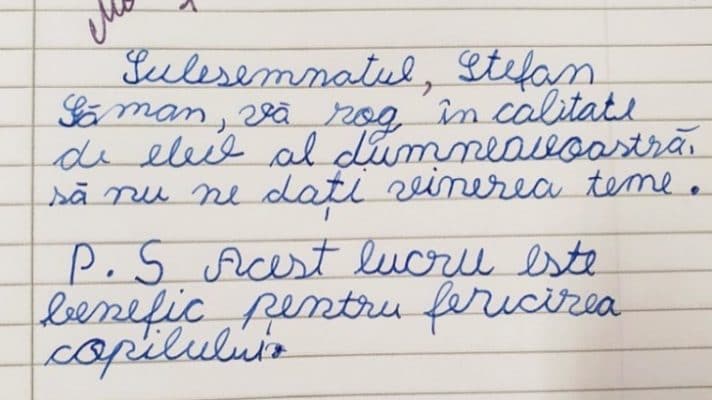 Sulesemnatul, Ștefan
Săman, vă rog în calitate
de elev al dumneavoastră,
să nu ne dați vinerea teme.
P.S Acest lucru este
benefic pentru fericirea
copilului.